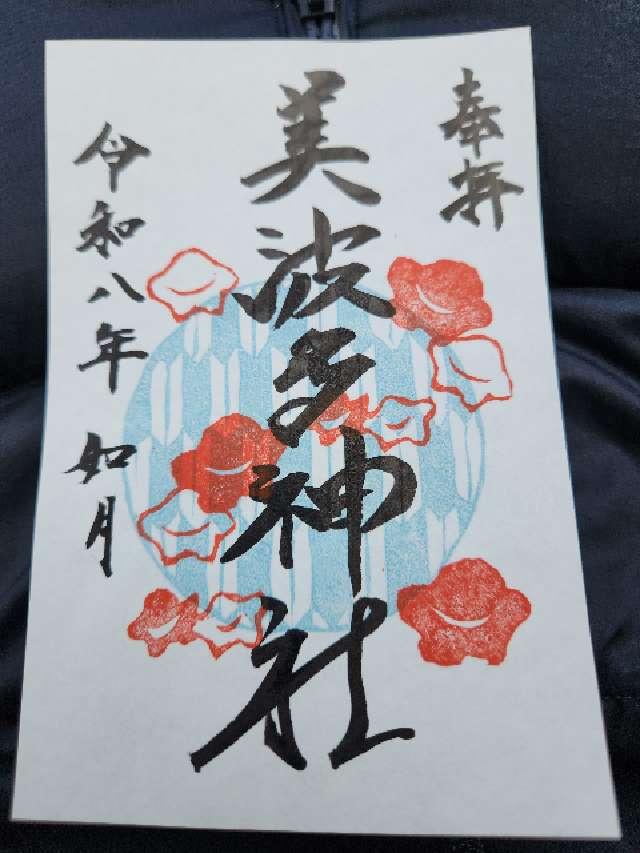 奉拝
美波多神社
令和八年 如月